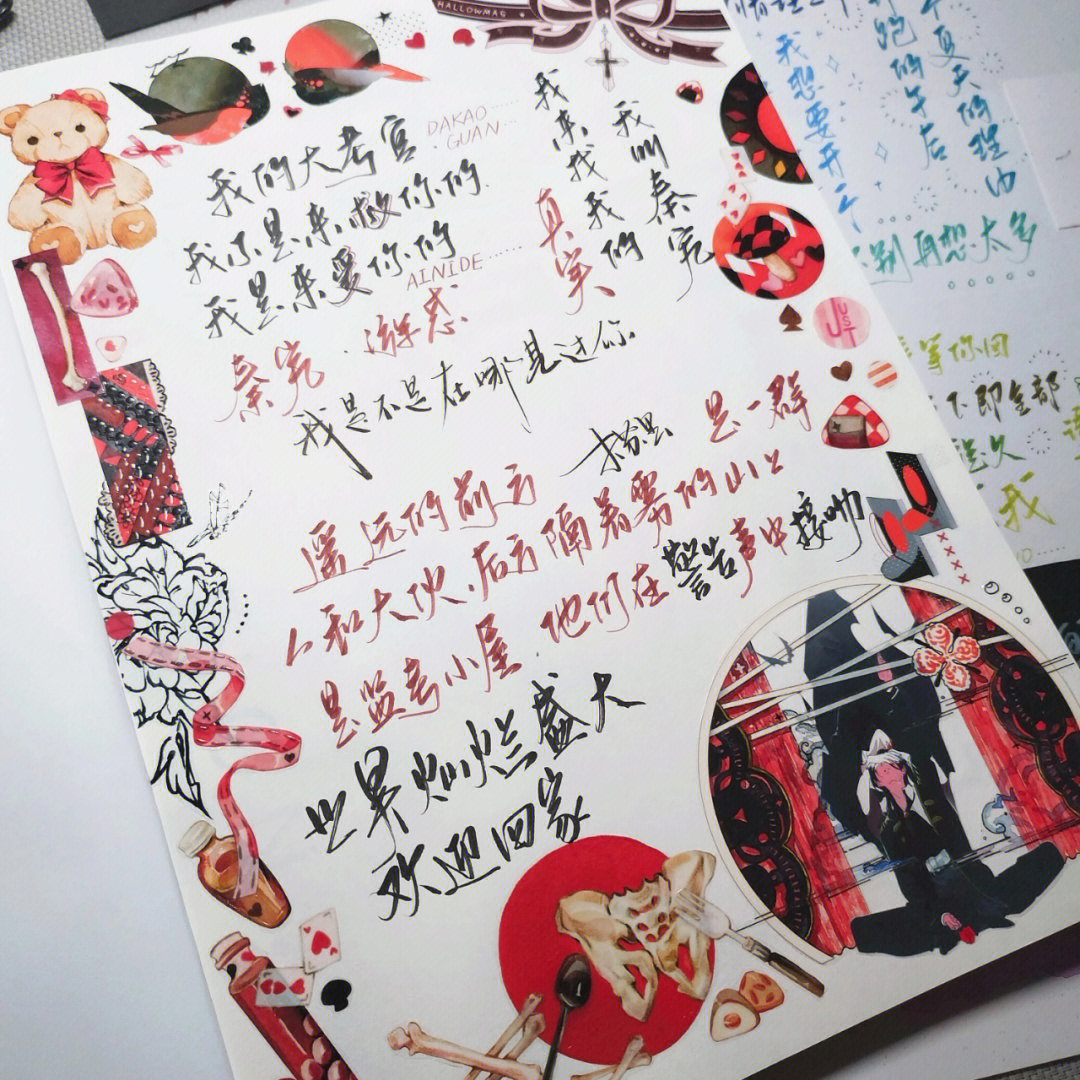 HALLOWMAS
我的大考官
DAKAO
GUAN
我不是来救你的
我是来爱你的
AINIDE
我叫秦究
我来找我的
真实
秦究 游惑
我是不是在哪见过你
是一群
遥远的前方
人和大伙,后方隔着雾的山上
是监考小屋.他们在警告声中接吻
世界灿烂盛大
欢迎回家
JUST
我想要开个
午后
夏天的理由
别再想太多
等你回
下即全部
我